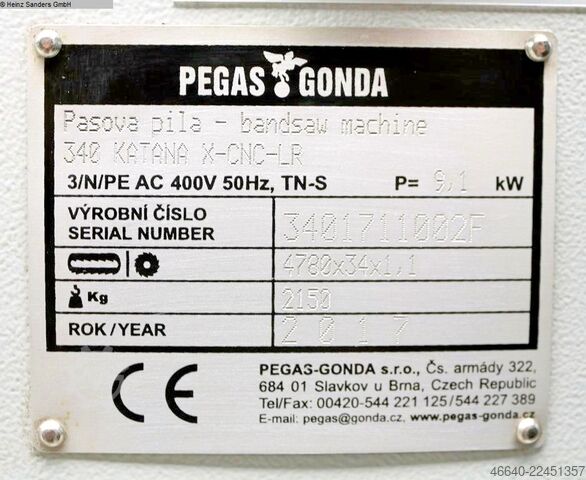 © Heinz Sanders GmbH
PEGAS GONDA
Pasova pila - bandsaw machine
340 KATANA X-CNC-LR
3/N/PE AC 400V 50Hz, TN-S P= 9,1 kW
VÝROBNÍ ČÍSLO
SERIAL NUMBER 3401711002F
4780x34x1,1
Kg 2150
ROK/YEAR 2017
CE
PEGAS-GONDA s.r.o., Čs. armády 322,
684 01 Slavkov u Brna, Czech Republic
Tel/Fax: 00420-544 221 125/544 227 389
E-mail: pegas@gonda.cz, www.pegas-gonda.cz
46640-22451357